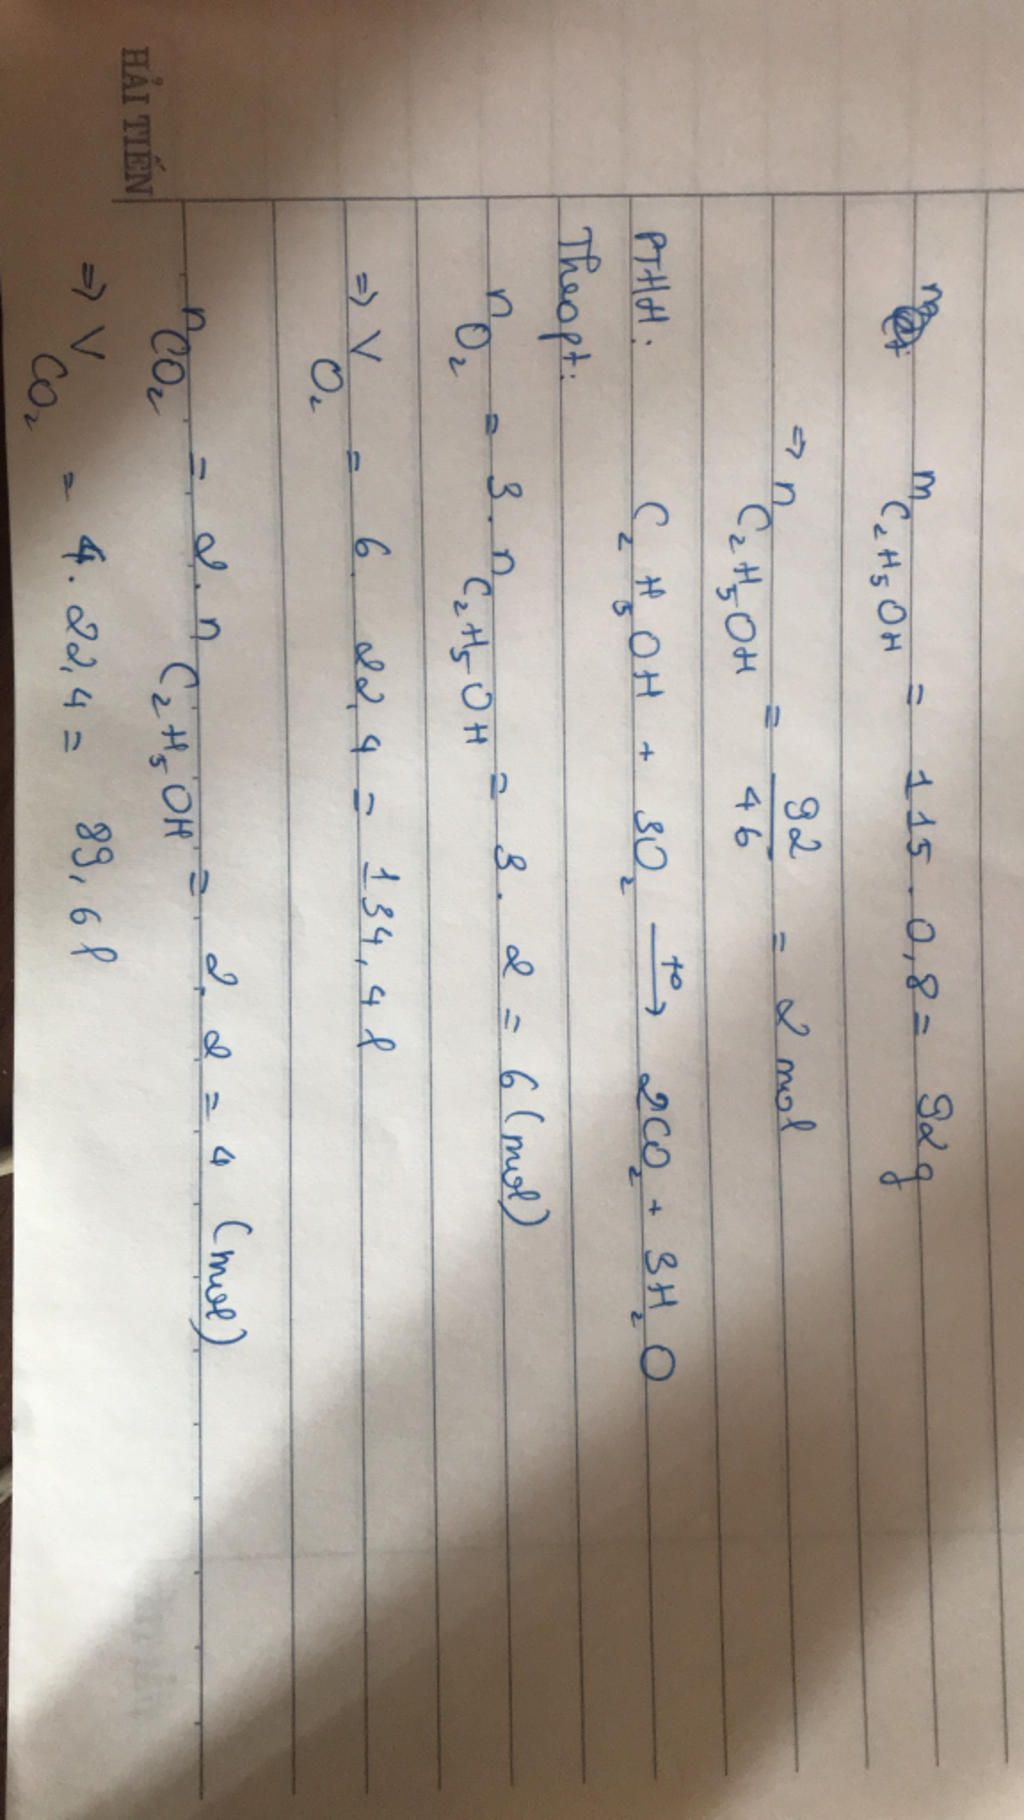 m C₂H₅OH = 115 . 0,8 = 92 g
=> n C₂H₅OH = 92/46 = 2 mol
PTHH: C₂H₅OH + 3O₂ —t°→ 2CO₂ + 3H₂O
Theo pt:
n O₂ = 3 . n C₂H₅OH = 3 . 2 = 6 (mol)
=> V O₂ = 6 . 22,4 = 134,4 l
n CO₂ = 2 . n C₂H₅OH = 2 . 2 = 4 (mol)
=> V CO₂ = 4 . 22,4 = 89,6 l
HẢI TIẾN